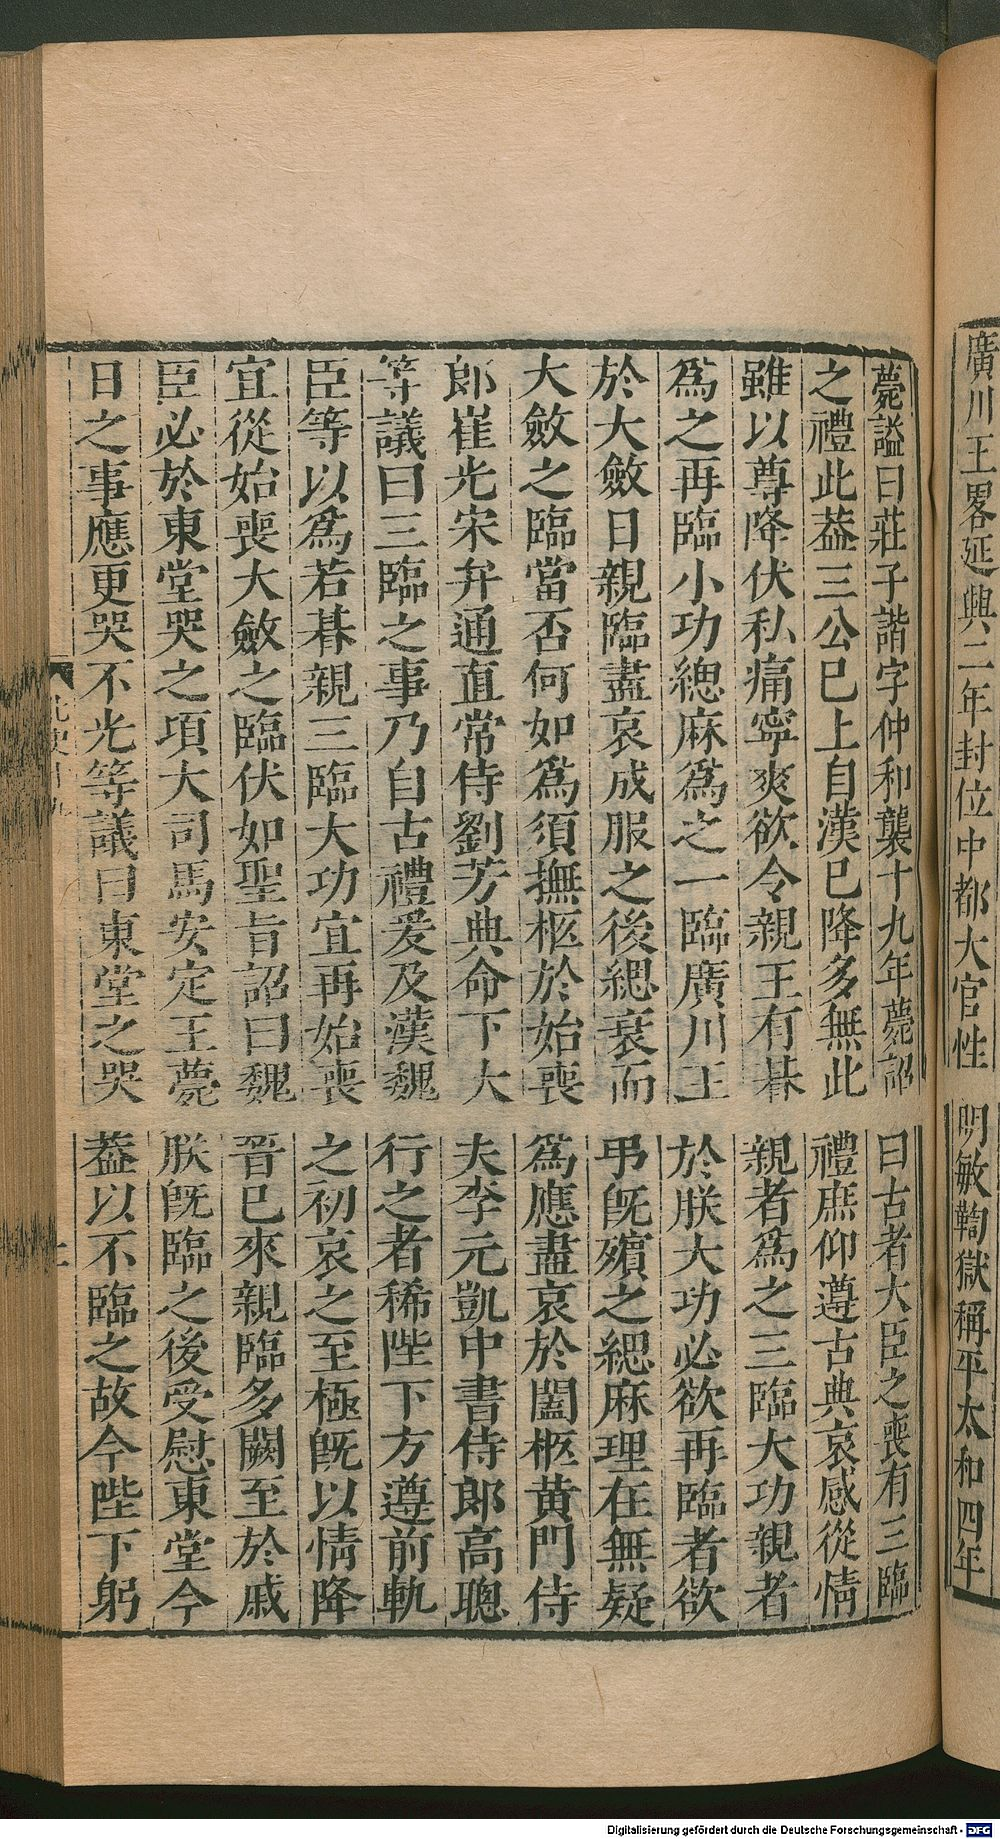 廣川王畧延興二年封位中都大官性明敏鞫獄稱平太和四年
薨謚曰莊子諧字仲和襲十九年薨詔曰古者大臣之喪有三臨
之禮此葢三公巳上自漢巳降多無此禮庶仰遵古典哀感從情
雖以尊降伏私痛寧爽欲令親王有朞親者爲之三臨大功親者
爲之再臨小功緦麻爲之一臨廣川王於朕大功必欲再臨者欲
於大斂日親臨盡哀成服之後緦衰而弔旣殯之緦麻理在無疑
大斂之臨當否何如爲須撫柩於始喪爲應盡哀於闔柩黃門侍
郎崔光宋弁通直常侍劉芳典命下大夫李元凱中書侍郎高聰
等議曰三臨之事乃自古禮爰及漢魏行之者稀陛下方遵前軌
臣等以爲若朞親三臨大功宜再始喪之初哀之至極旣以情降
宜從始喪大斂之臨伏如聖旨詔曰魏晉巳來親臨多闕至於戚
臣必於東堂哭之項大司馬安定王薨朕旣臨之後受慰東堂今
日之事應更哭不光等議曰東堂之哭葢以不臨之故今陛下躬
Digitalisierung gefördert durch die Deutsche Forschungsgemeinschaft - DFG